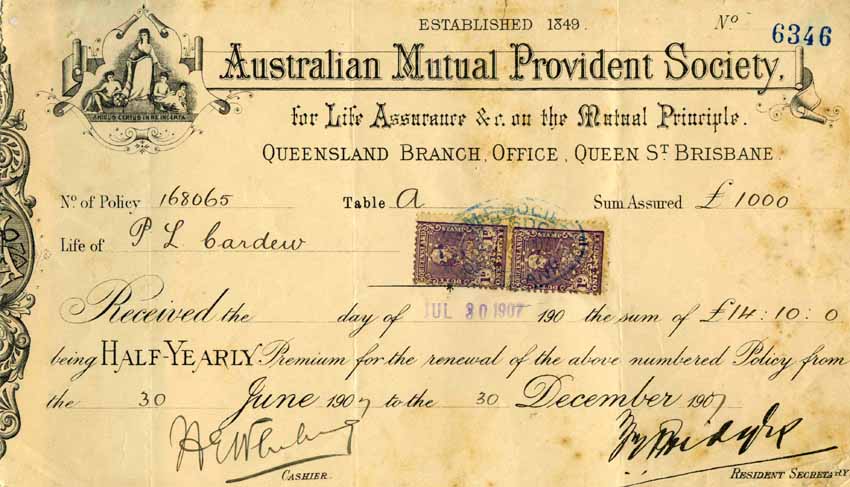 ESTABLISHED 1849. No 6346
Australian Mutual Provident Society,
AMICUS CERTUS IN RE INCERTA
for Life Assurance &c. on the Mutual Principle.
QUEENSLAND BRANCH, OFFICE, QUEEN ST BRISBANE.
No. of Policy 168065 Table A Sum Assured £ 1000
Life of P L Cardew
Received the day of JUL 30 1907 190 the sum of £14:10:0
being HALF-YEARLY Premium for the renewal of the above numbered Policy from
the 30 June 1907 to the 30 December 1907
CASHIER. RESIDENT SECRETARY.